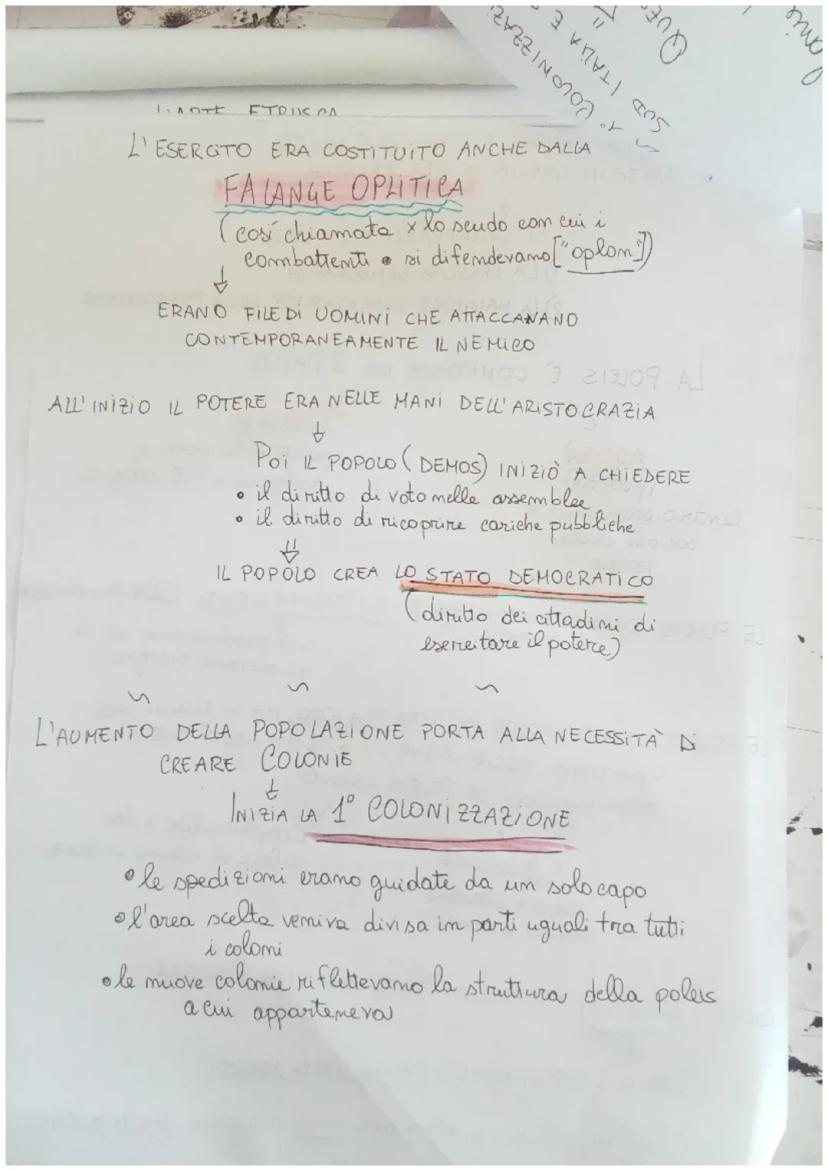 L'ARTE ETRUSCA
1° COLONIZZAZI
SUD ITALIA E
QUE
L'ESERCITO ERA COSTITUITO ANCHE DALLA
FALANGE OPLITICA
(così chiamata x lo scudo con cui i
combattenti • si difendevano ["oplon"])
ERANO FILE DI UOMINI CHE ATTACCANANO
CONTEMPORANEAMENTE IL NEMICO
ALL'INIZIO IL POTERE ERA NELLE MANI DELL'ARISTOCRAZIA
POI IL POPOLO (DEMOS) INIZIÒ A CHIEDERE
• il diritto di voto nelle assemblee
• il diritto di ricoprire cariche pubbliche
IL POPOLO CREA LO STATO DEMOCRATICO
(diritto dei cittadini di
esercitare il potere)
L'AUMENTO DELLA POPOLAZIONE PORTA ALLA NECESSITÀ DI
CREARE COLONIE
INIZIA LA 1° COLONIZZAZIONE
• le spedizioni erano guidate da un solo capo
• l'area scelta veniva divisa in parti uguali tra tutti
i coloni
• le nuove colonie riflettevano la struttura della poleis
a cui apparteneva